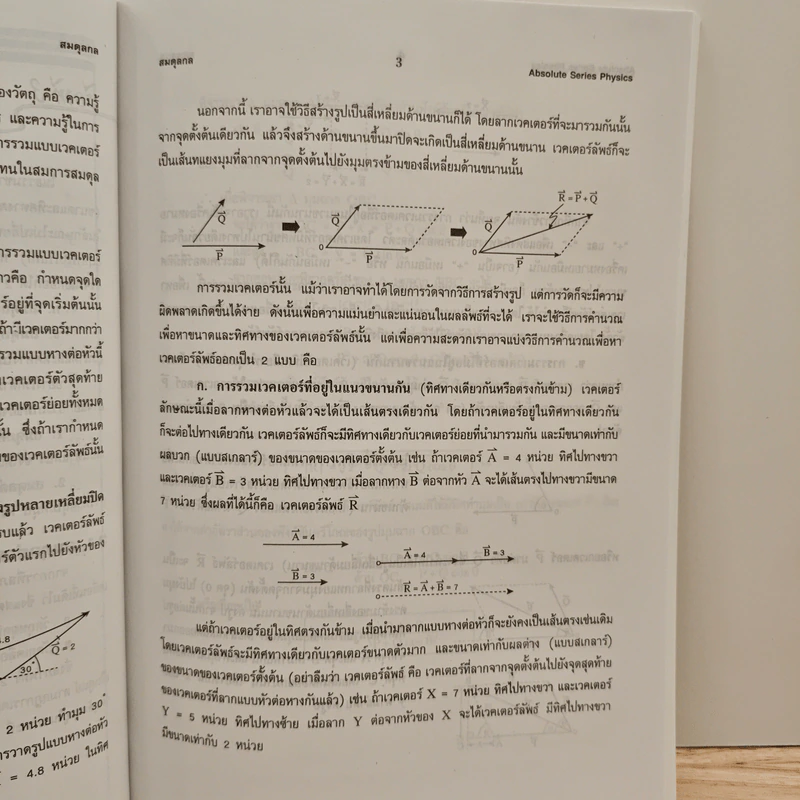 สมดุลกล
องวัตถุ คือ ความรู้
และความรู้ในการ
ารรวมแบบเวคเตอร์
ทนในสมการสมดุล
ารรวมแบบเวคเตอร์
าวคือ กำหนดจุดใด
ร์อยู่ที่จุดเริ่มต้นนั้น
ถ้ามีเวคเตอร์มากกว่า
รวมแบบหางต่อหัวนี้
เวคเตอร์ตัวสุดท้าย
เวคเตอร์ย่อยทั้งหมด
ั้น ซึ่งถ้าเรากำหนด
ของเวคเตอร์ลัพธ์นั้น
รูปหลายเหลี่ยมปิด
รบแล้ว เวคเตอร์ลัพธ์
ร์ตัวแรกไปยังหัวของ
4.8
Q = 2
30°
2 หน่วย ทำมุม 30°
ารวาดรูปแบบหางต่อหัว
= 4.8 หน่วย ในทิศ
สมดุลกล
3
Absolute Series Physics
นอกจากนี้ เราอาจใช้วิธีสร้างรูปเป็นสี่เหลี่ยมด้านขนานก็ได้ โดยลากเวคเตอร์ที่จะมารวมกันนั้น
จากจุดตั้งต้นเดียวกัน แล้วจึงสร้างด้านขนานขึ้นมาปิดจะเกิดเป็นสี่เหลี่ยมด้านขนาน เวคเตอร์ลัพธ์ก็จะ
เป็นเส้นทแยงมุมที่ลากจากจุดตั้งต้นไปยังมุมตรงข้ามของสี่เหลี่ยมด้านขนานนั้น
Q⃗
P⃗
Q⃗
0
P⃗
R⃗ = P⃗ + Q⃗
Q⃗
0
P⃗
การรวมเวคเตอร์นั้น แม้ว่าเราอาจทำได้โดยการวัดจากวิธีการสร้างรูป แต่การวัดก็จะมีความ
ผิดพลาดเกิดขึ้นได้ง่าย ดังนั้นเพื่อความแม่นยำและแน่นอนในผลลัพธ์ที่จะได้ เราจะใช้วิธีการคำนวณ
เพื่อหาขนาดและทิศทางของเวคเตอร์ลัพธ์นั้น แต่เพื่อความสะดวกเราอาจแบ่งวิธีการคำนวณเพื่อหา
เวคเตอร์ลัพธ์ออกเป็น 2 แบบ คือ
ก. การรวมเวคเตอร์ที่อยู่ในแนวขนานกัน (ทิศทางเดียวกันหรือตรงกันข้าม) เวคเตอร์
ลักษณะนี้เมื่อลากหางต่อหัวแล้วจะได้เป็นเส้นตรงเดียวกัน โดยถ้าเวคเตอร์อยู่ในทิศทางเดียวกัน
ก็จะต่อไปทางเดียวกัน เวคเตอร์ลัพธ์ก็จะมีทิศทางเดียวกับเวคเตอร์ย่อยที่นำมารวมกัน และมีขนาดเท่ากับ
ผลบวก (แบบสเกลาร์) ของขนาดของเวคเตอร์ตั้งต้น เช่น ถ้าเวคเตอร์ A⃗ = 4 หน่วย ทิศไปทางขวา
และเวคเตอร์ B⃗ = 3 หน่วย ทิศไปทางขวา เมื่อลากหาง B⃗ ต่อจากหัว A⃗ จะได้เส้นตรงไปทางขวามีขนาด
7 หน่วย ซึ่งผลที่ได้นี้ก็คือ เวคเตอร์ลัพธ์ R⃗
A⃗ = 4
B⃗ = 3
A⃗ = 4
B⃗ = 3
R⃗ = A⃗ + B⃗ = 7
แต่ถ้าเวคเตอร์อยู่ในทิศตรงกันข้าม เมื่อนำมาลากแบบหางต่อหัวก็จะยังคงเป็นเส้นตรงเช่นเดิม
โดยเวคเตอร์ลัพธ์จะมีทิศทางเดียวกับเวคเตอร์ขนาดตัวมาก และขนาดเท่ากับผลต่าง (แบบสเกลาร์)
ของขนาดของเวคเตอร์ตั้งต้น (อย่าลืมว่า เวคเตอร์ลัพธ์ คือ เวคเตอร์ที่ลากจากจุดตั้งต้นไปยังจุดสุดท้าย
ของเวคเตอร์ที่ลากแบบหัวต่อหางกันแล้ว) เช่น ถ้าเวคเตอร์ X = 7 หน่วย ทิศไปทางขวา และเวคเตอร์
Y = 5 หน่วย ทิศไปทางซ้าย เมื่อลาก Y ต่อจากหัวของ X จะได้เวคเตอร์ลัพธ์ มีทิศไปทางขวา
มีขนาดเท่ากับ 2 หน่วย